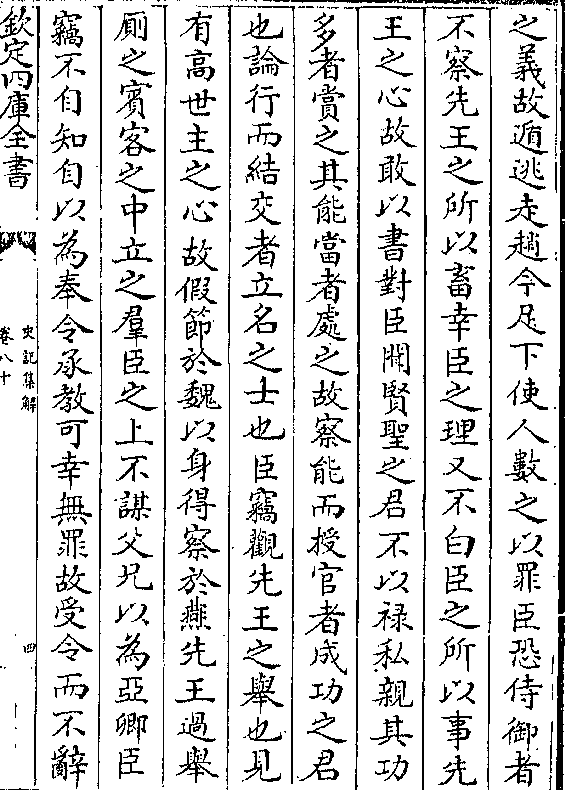 之義故遁逃走趙今足下使人數之以罪臣恐侍御者
不察先王之所以畜幸臣之理又不白臣之所以事先
王之心故敢以書對臣聞賢聖之君不以祿私親其功
多者賞之其能當者處之故察能而授官者成功之君
也論行而結交者立名之士也臣竊觀先王之舉也見
有高世主之心故假節於魏以身得察於燕先王過舉
廁之賓客之中立之羣臣之上不謀父兄以為亞卿臣
竊不自知自以為奉令承教可幸無罪故受令而不辭
欽定四庫全書
史記集解
卷八十
四